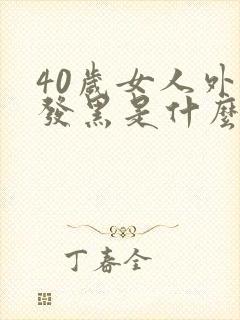 40歲女人外
發黑是什麼
丁春全